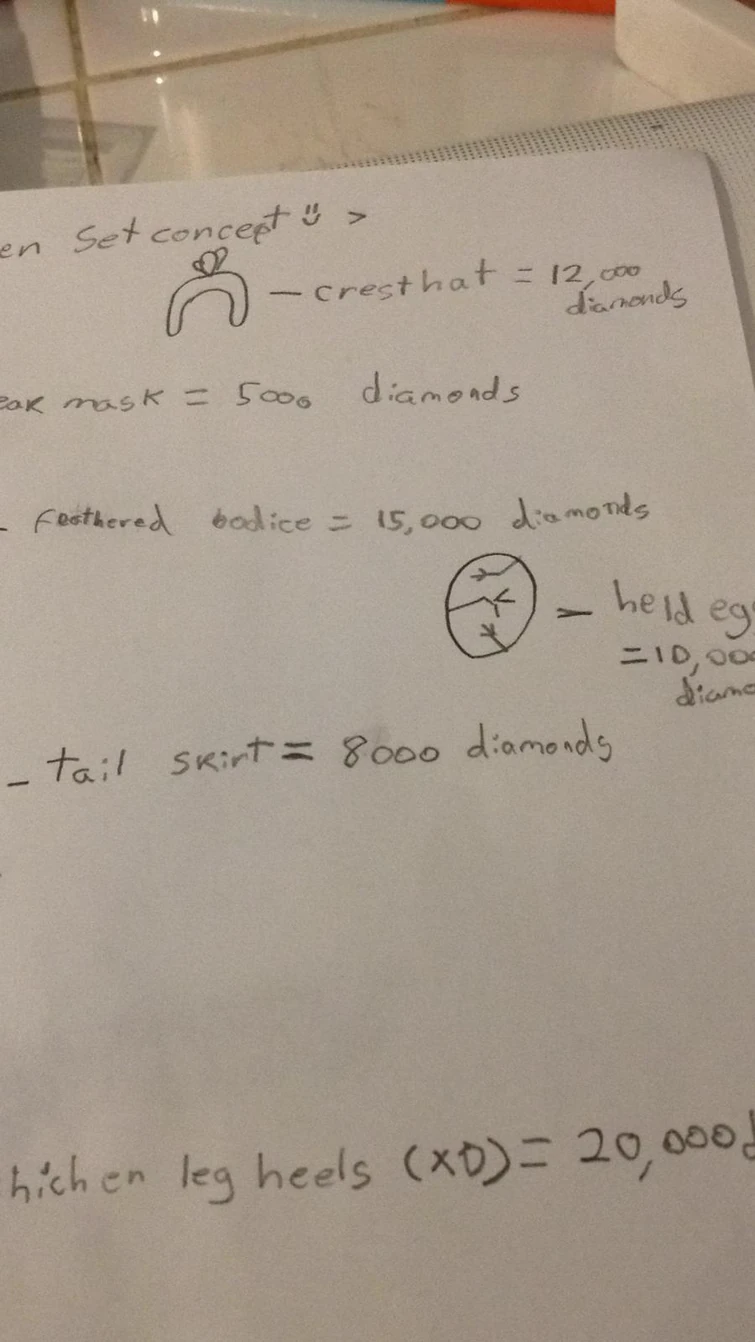 en Set concept >
- crest hat = 12,000
diamonds
eak mask = 5000 diamonds
- feathered bodice = 15,000 diamonds
- held eg
=10,00
diamo
- tail skirt = 8000 diamonds
hichen leg heels (XD) = 20,000 d